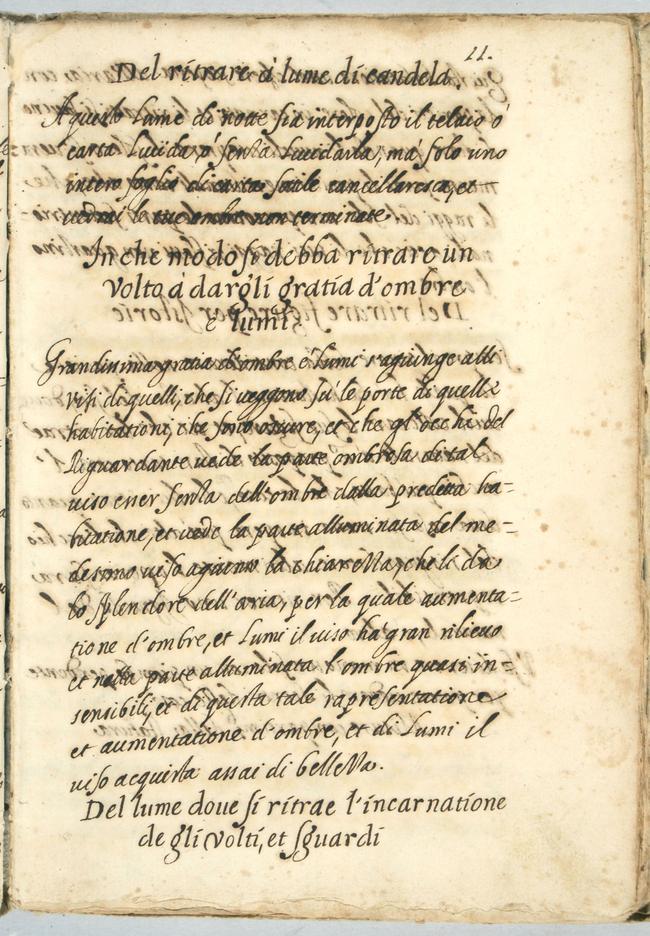 11.
Del ritrare à lume di candela.
A questo lume di notte sia interposto il telaio ò
carta lucida, ò senza lucidarla, mà solo uno
intero foglio di carta sotile cancellaresca, et
vedrai le tue ombre non terminate.
In che modo si debba ritrare un
volto à dargli gratia d'ombre
è lumi.
Grandissima gratia di ombre è lumi s'agiunge alli
visi di quelli, che si veggono sù le porte di quelle
habitationi, che sono oscure, et che gl'occhi del
Riguardante vede la parte ombrosa di tal
viso esser senza dell'ombre dalla predetta ha=
bitatione, et vede la parte alluminata del me=
desimo viso agiunto la chiarezza, che li da
lo splendore dell'aria, per la quale aumenta=
tione d'ombre, et lumi il viso hà gran rilievo
et nella parte alluminata l'ombre quasi in=
sensibili, et di questa tale rapresentatione
et aumentatione d'ombre, et di lumi il
viso acquista assai di bellezza.
Del lume dove si ritrae l'incarnatione
de gli volti, et sguardi